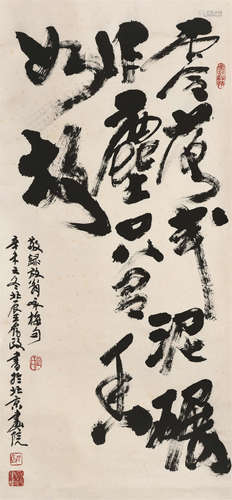 零落成泥碾
作塵只有香
如故
敬録放翁咏梅句
辛未冬北辰王為政書於北京畫院